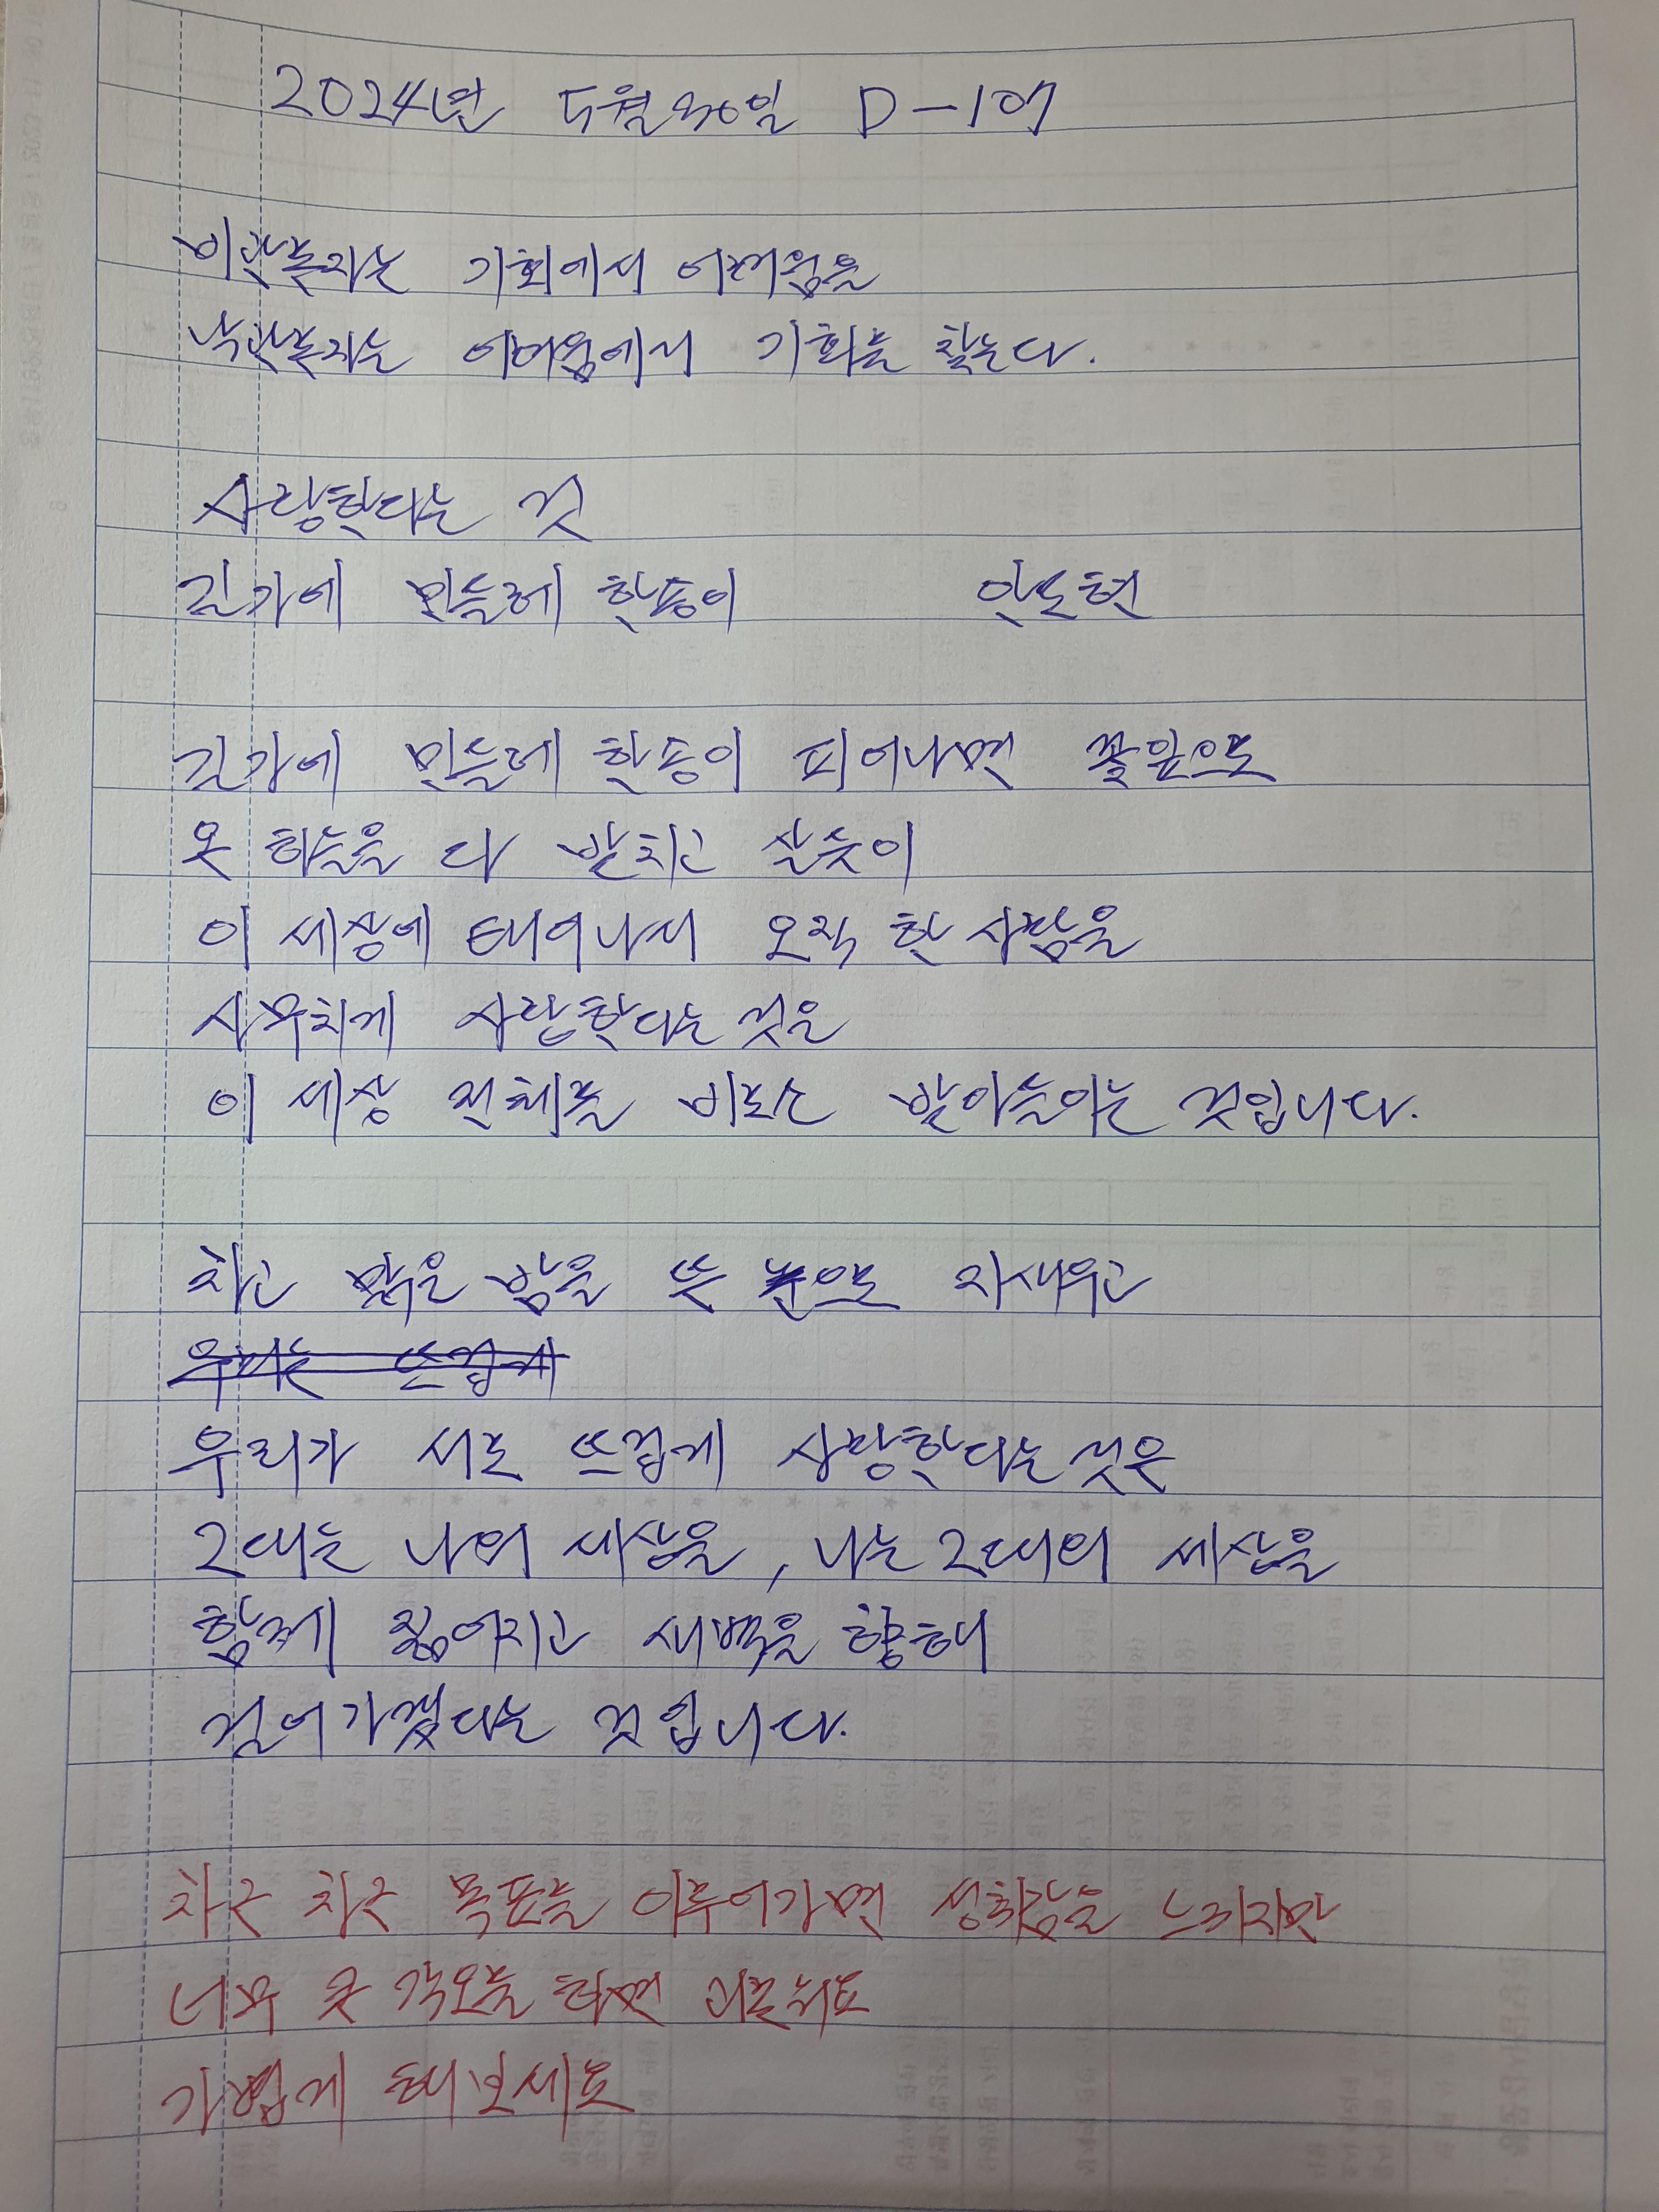 2024년 5월 30일 D-107
비관론자는 기회에서 어려움을
낙관론자는 어려움에서 기회를 찾는다.
사랑한다는 것
길가에 민들레 한송이 안도현
길가에 민들레 한송이 피어나면 꽃잎으로
온 하늘을 다 받치고 살듯이
이 세상에 태어나서 오직 한 사람을
사무치게 사랑한다는 것은
이 세상 전체를 비로소 받아들이는 것입니다.
차고 맑은 밤을 뜬 눈으로 지새우고
우리는 뜨겁게
우리가 서로 뜨겁게 사랑한다는 것은
그대는 나의 세상을, 나는 그대의 세상을
함께 짊어지고 새벽을 향해
걸어가겠다는 것입니다.
차근 차근 목표를 이루어가면 성취감을 느끼지만
너무 큰 각오를 하면 버틀려요
가볍게 해보세요